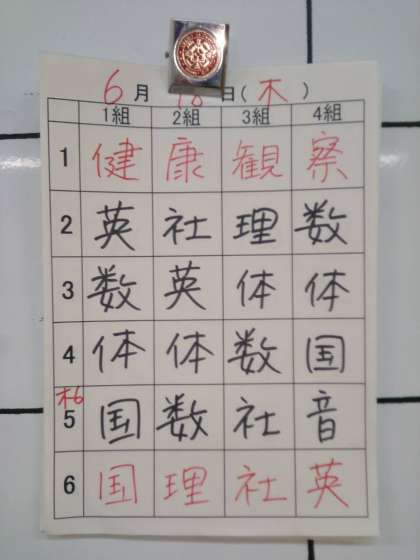 6月18日(木)
1組 2組 3組 4組
1 健 康 観 察
2 英 社 理 数
3 数 英 体 体
4 体 体 数 国
木6
5 国 数 社 音
6 国 理 社 英